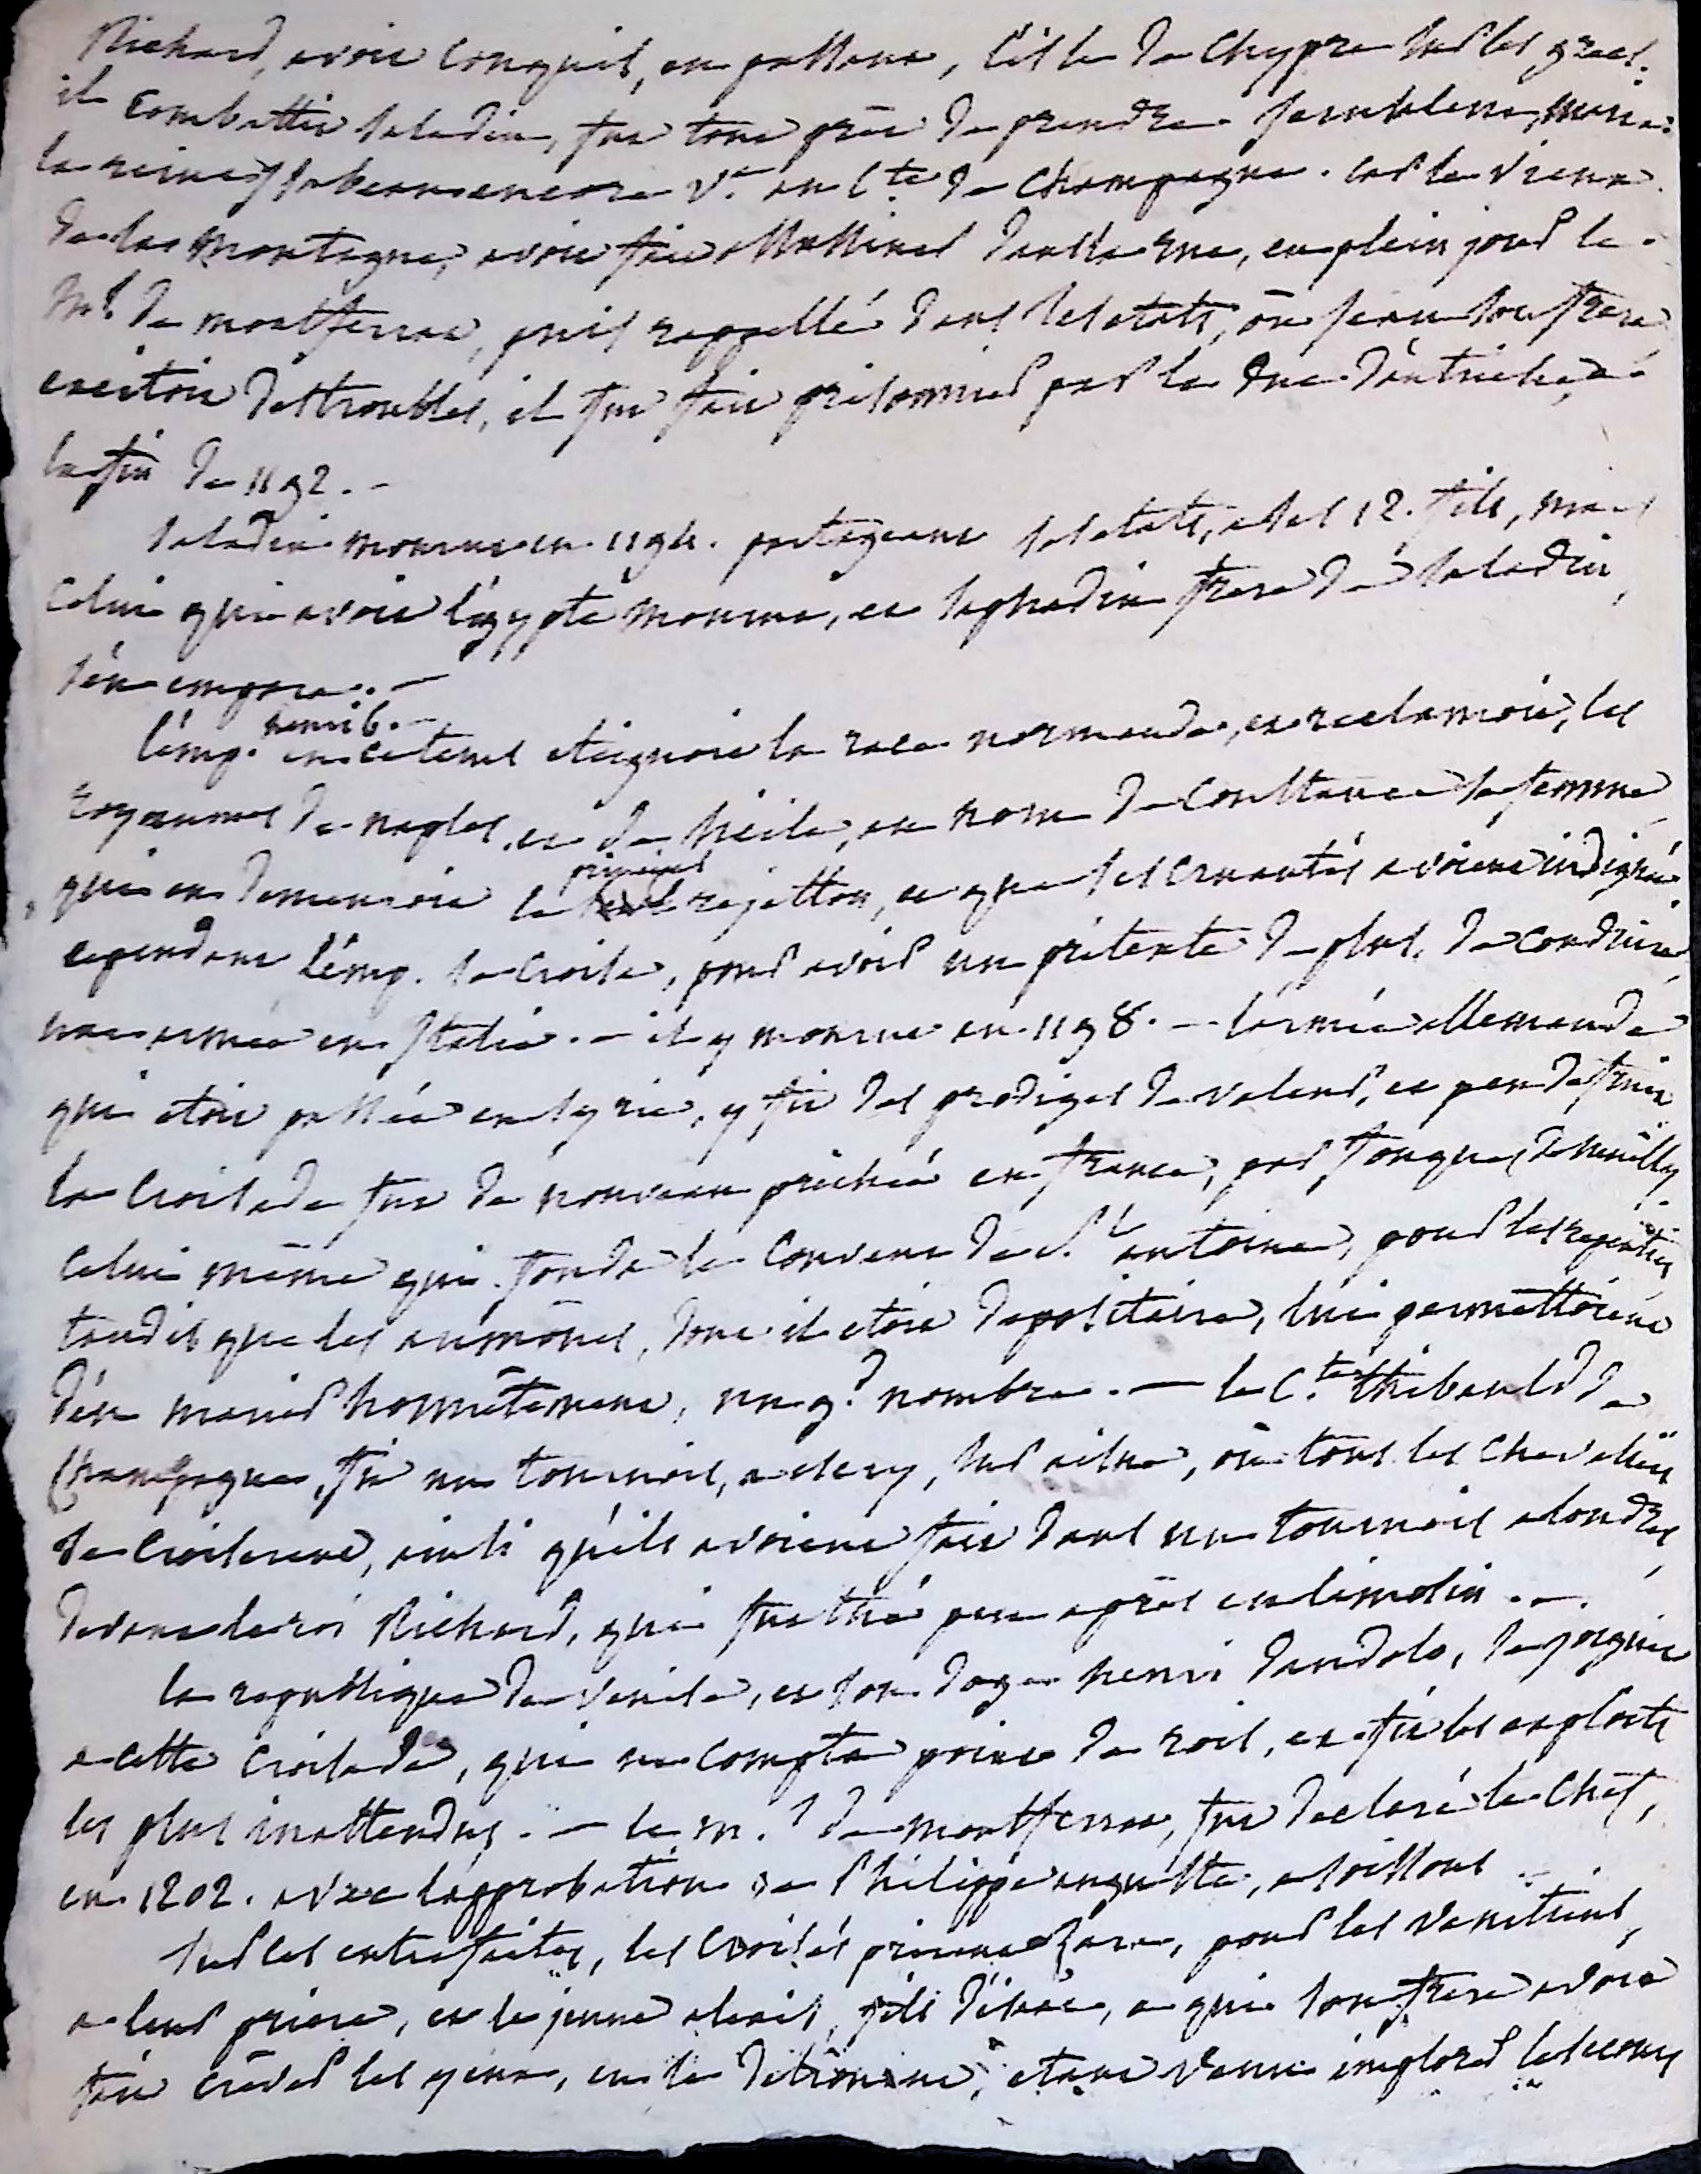 Richard, avoit conquis, en passant, l'isle de Chypre sur les grecs.
il combattit saladin, fut tout près de prendre jerusalem, maria
la reine ysabeau encore v.e au C.te de Champagne. car le vieux
de la montagne, avoit fait assassiner dans la rue, en plein jour le
M.s de montferrat, puis rappellé dans ses etats, où jean son frere
excitoit des troubles, il fut fait prisonnier par le duc d'autriche, a
la fin de 1192. -
saladin mourut en 1194. partageant ses etats, a ses 12. fils, mais
celui qui avoit l'egypte mourut, et saphadin frere de saladin,
s'en empara. -
henri 6. -
l'emp. en ce tems eteignoit la race normande, et reclamoit, les
royaumes de naples, et de sicile, au nom de Constance sa femme
principal
qui en demeuroit le rejetton, et que ses cruautés avoient indignée
cependant l'emp. se croisa, pour avoir un prétexte de plus, de conduire
une armée en Italie. - il y mourut en 1198. - l'armée allemande
qui etoit passée en syrie, y fit des prodiges de valeur, et peu de fruit
la croisade fut de nouveau prêchée en france, par foulques de neuilly
celui même qui fonda le couvent de S.t antoine, pour les repenties
tandis que les aumônes, dont il etoit depositaire, lui permettoient
d'en marier honnêtement, un g.d nombre. - le C.te thibauld de
Champagne, fit un tournois, a ecry, sur aisne, où tous les chevaliers
se croiserent, ainsi qu'ils avoient fait dans un tournois a londres,
devant le roi Richard, qui fut tué peu après en limosin. -.
la republique de venise, et son doge henri dandolo, se joignit
a cette croisade, qui ne compta point de rois, et fit les exploits
les plus inattendus. - le m.s de montferrat, fut declaré le chef,
en 1202. avec l'approbation de Philippe auguste, a soissons
sur ces entrefaites, les Croisés prirent Zara, pour les venitiens,
a leur priere, et le jeune alexis, fils d'isaac, a qui son frere avoit
fait crêver les yeux, en le detrônant, etant venu implorer le secours